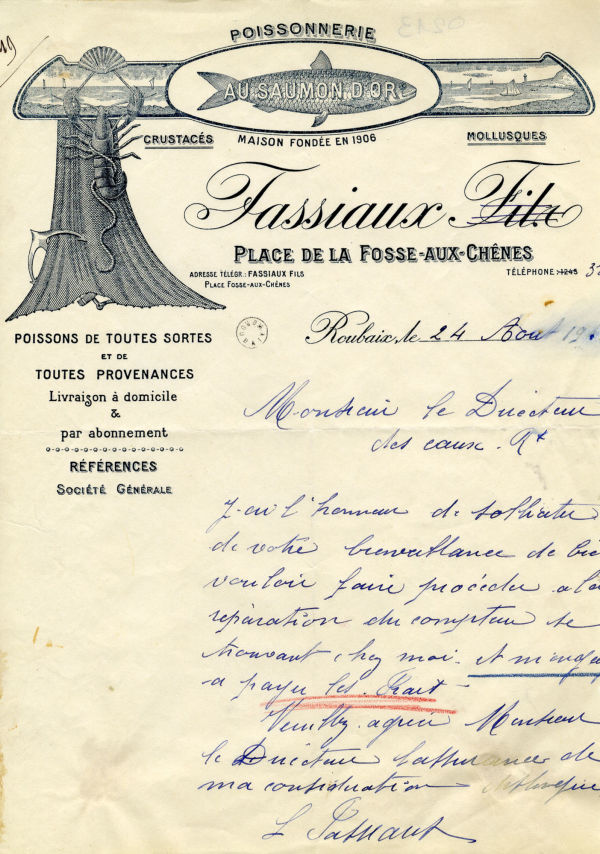 POISSONNERIE
AU SAUMON D'OR
CRUSTACÉS
MAISON FONDÉE EN 1906
MOLLUSQUES
Fassiaux Fils
PLACE DE LA FOSSE-AUX-CHÊNES
ADRESSE TÉLÉGR: FASSIAUX FILS
PLACE FOSSE-AUX-CHÊNES
TÉLÉPHONE: 1245 3
POISSONS DE TOUTES SORTES
ET DE
TOUTES PROVENANCES
Livraison à domicile
&
par abonnement
RÉFÉRENCES
SOCIÉTÉ GÉNÉRALE
Roubaix, le 24 Aout 19
Monsieur le Directeur
des eaux. Rx
J'ai l'honneur de solliciter
de votre bienveillance de bien
vouloir faire procéder a la
réparation du compteur se
trouvant chez moi. et m'engage
a payer les frait.
Veuillez agréer Monsieur
le Directeur l'assurance de
ma considération
L Fassiaux